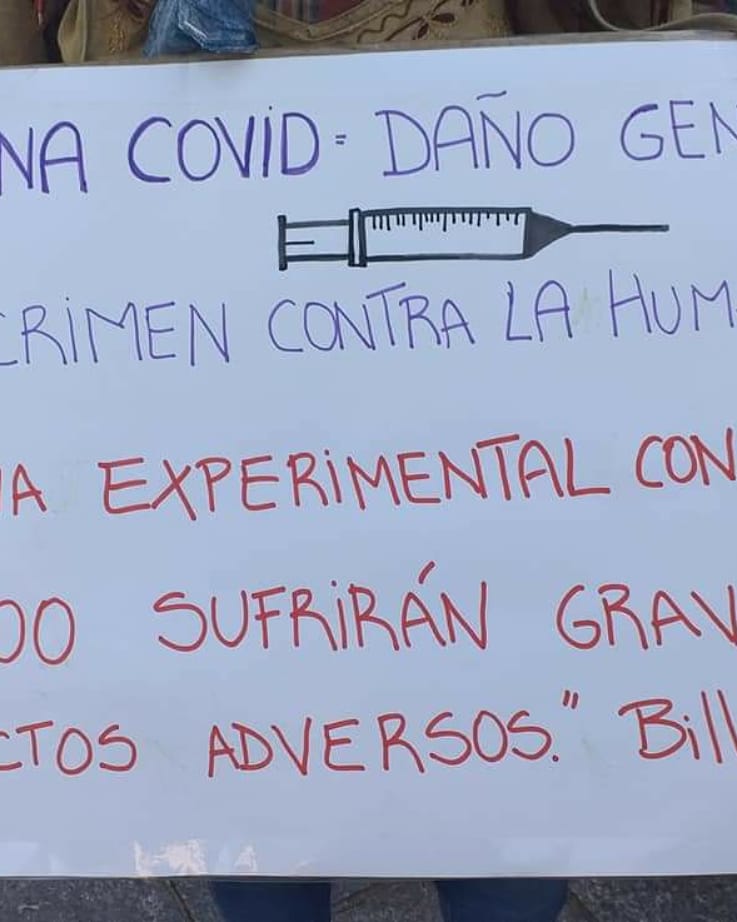 NA COVID = DAÑO GEN
CRIMEN CONTRA LA HUM
A EXPERIMENTAL CON
00 SUFRIRÁN GRAV
CTOS ADVERSOS." Bill